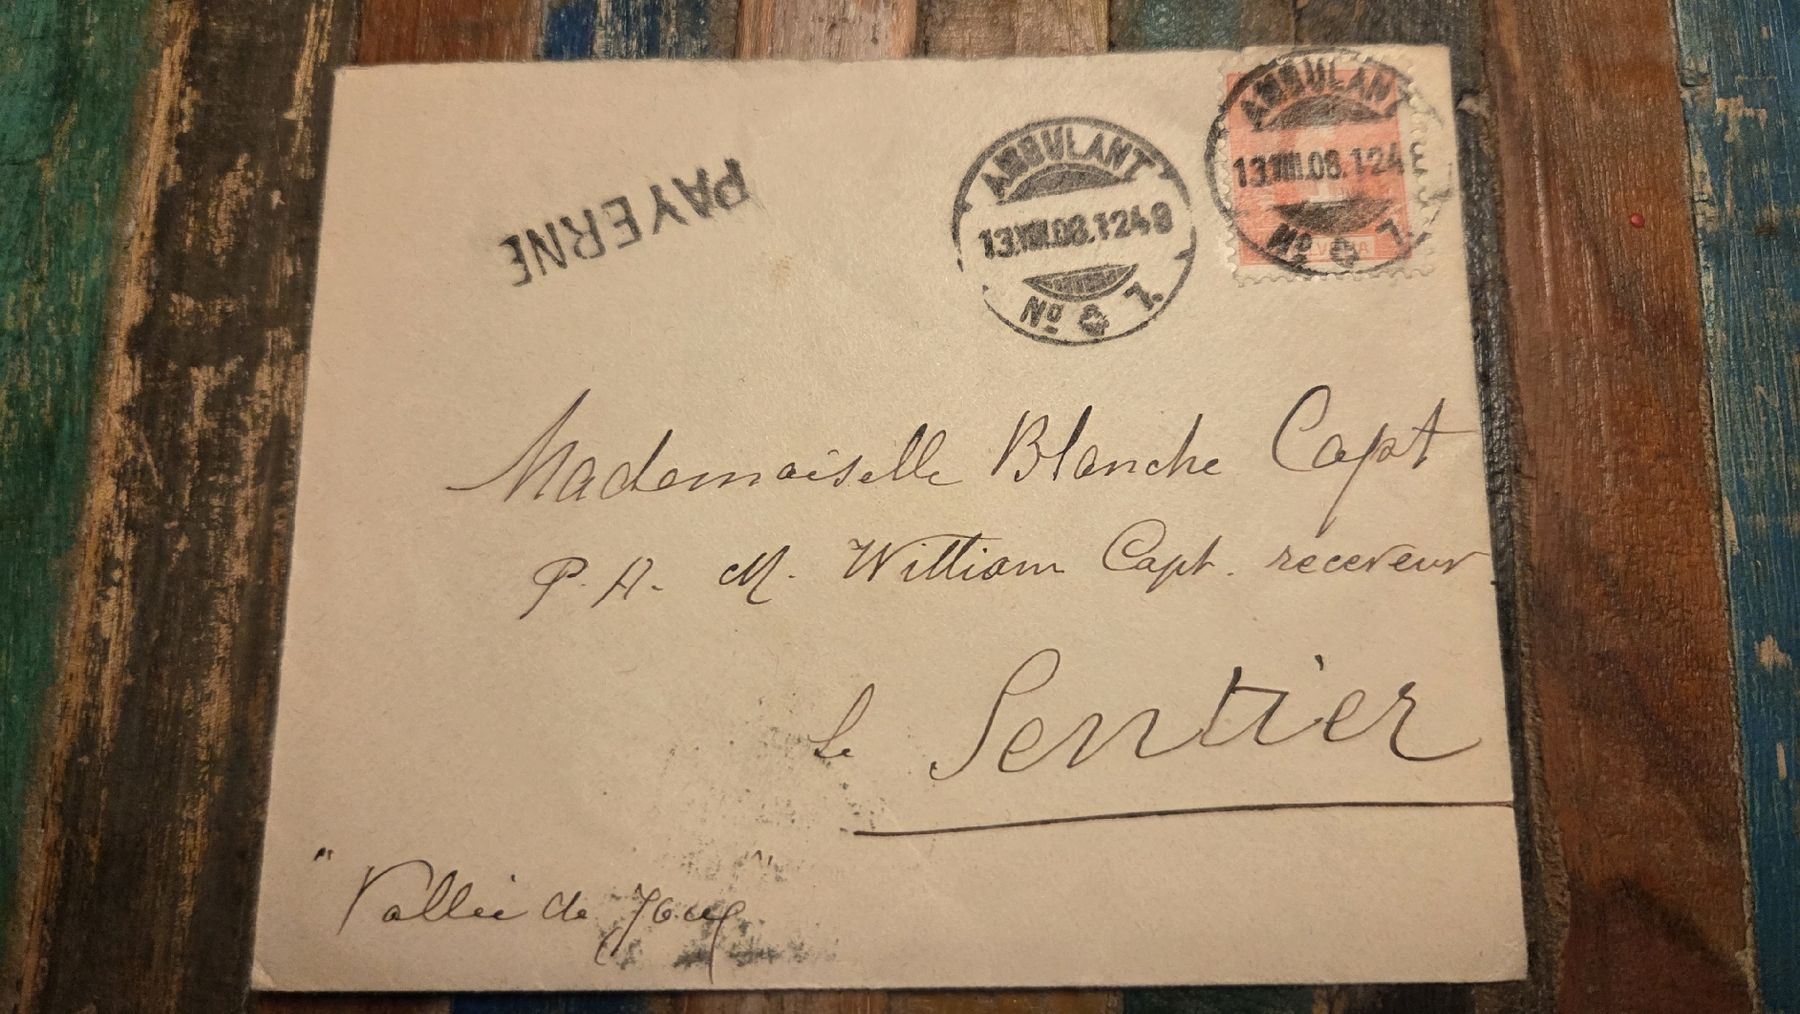 PAYERNE
AMBULANT
13.VIII.08.1248
No 7.
AMBULANT
13.VIII.08.124
No 7.
Mademoiselle Blanche Capt
P. A. M. William Capt. receveur
Le Sentier
"Vallée de Joux"